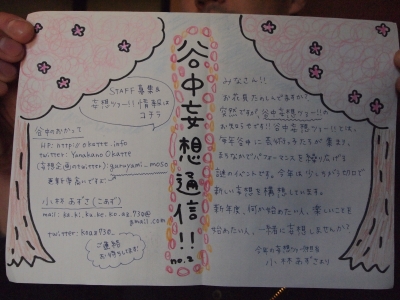 谷中妄想通信!!
no.2
みなさん!!
お花見たのしんでますか?
突然ですが、谷中妄想ツアー!!の
お知らせです!! 谷中妄想ツアー!!では、
毎年谷中に表現者たちが集まり、
まちなかでパフォーマンスを繰り広げる
謎のイベントです。今年は少しちがう切り口で
新しい妄想を構想しています。
新年度、何か始めたい人、楽しいことを
始めたい人、一緒に妄想しませんか?
今年の妄想ツアー担当
小林あずさより
STAFF募集&
妄想ツアー!! 情報は
コチラ
谷中のおかって
HP: http://okatte.info
twitter: Yanakano Okatte
(妄想企画のtwitter): garuyami_moso
更新準備中です
小林あずさ(こあず)
gmail.com
twitter: koaz730
ご連絡
お待ちしてます!